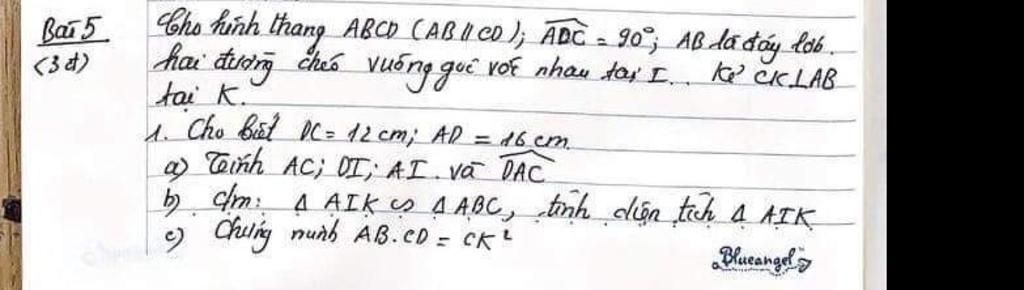 Bài 5 Cho hình thang ABCD (AB // CD); ADC = 90°; AB là đáy lớn.
(3đ) hai đường chéo vuông góc với nhau tại I.. Kẻ CK⊥AB
tại K.
1. Cho biết DC = 12 cm; AD = 16 cm
a) Tính AC; DI; AI. và DAC
b) c/m: Δ AIK ∽ Δ ABC, tính diện tích Δ AIK
c) Chứng minh AB.CD = CK²
Blueangel